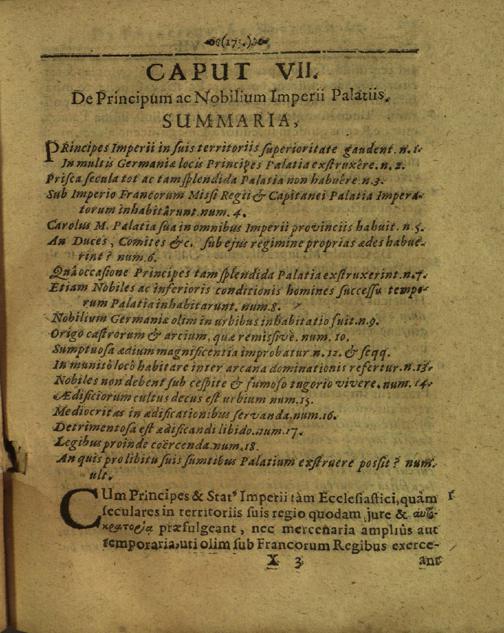 CAPUT VII.
De Principum ac Nobilium Imperii Palatiis.
SUMMARIA,
PRincipes Imperii in suis territoriis superioritate gaudent. n. 1.
In multis Germaniæ locis Principes Palatia exstruxêre. n. 2.
Prisca secula tot ac tam splendida Palatia non habuêre n. 3.
Sub Imperio Francorum Missi Regii & Capitanei Palatia Impera-
torum inhabitârunt. num. 4.
Carolus M. Palatia sua in omnibus Imperii provinciis habuit. n. 5.
An Duces, Comites &c. sub ejus regimine proprias ædes habue-
rint? num. 6.
Quâ occasione Principes tam splendida Palatia exstruxerint. n. 7.
Etiam Nobiles ac inferioris conditionis homines successu tempo-
rum Palatia inhabitarunt. num. 8.
Nobilium Germaniæ olim in urbibus inhabitatio fuit. n. 9.
Origo castrorum & arcium, quæ remissivè. num. 10.
Sumptuosa ædium magnificentia improbatur n. 12. & seqq.
In munitô locô habitare inter arcana dominationis refertur. n. 13.
Nobiles non debent sub cespite & fumoso tugorio vivere. num. 14.
Ædificiorum cultus decus est urbium num. 15.
Mediocritas in ædificationibus servanda. num. 16.
Detrimentosa est ædificandi libido. num. 17.
Legibus proinde coërcenda. num. 18.
An quis pro libitu suis sumtibus Palatium exstruere possit? num.
ult.
CUm Principes & Stat⁹ Imperii tàm Ecclesiastici, quàm
seculares in territoriis suis regio quodam jure & αυτο-
κρατορία præfulgeant, nec mercenaria ampliùs aut
temporaria, uti olim sub Francorum Regibus exerce-
X 3 ant